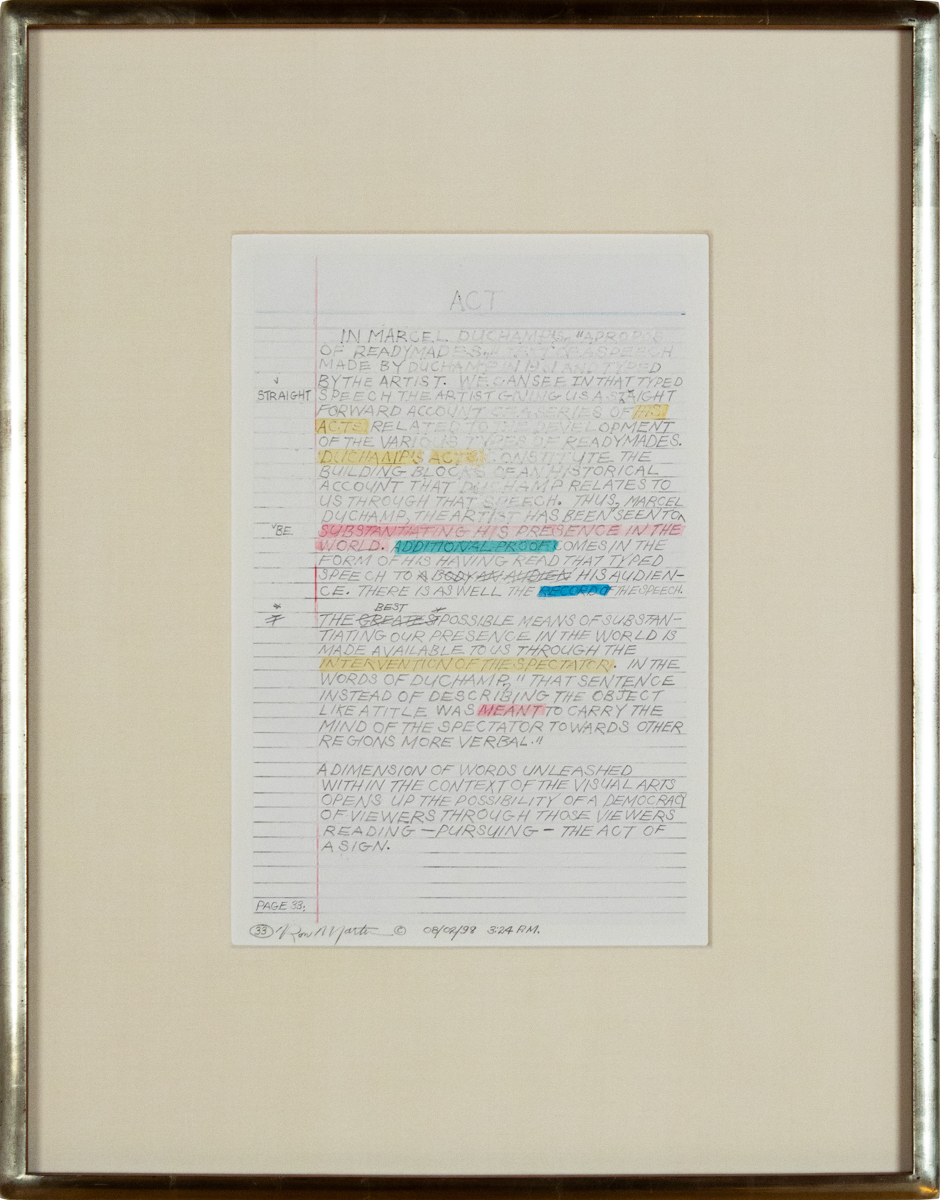 ACT
IN MARCEL DUCHAMP'S, "APROPOS
OF READYMADES" A SPEECH
MADE BY DUCHAMP IN 1961 AND TYPED
BY THE ARTIST. WE CAN SEE IN THAT TYPED
STRAIGHT SPEECH THE ARTIST GIVING US A STAIGHT
FORWARD ACCOUNT OF A SERIES OF HIS
ACTS RELATED TO THE DEVELOPMENT
OF THE VARIOUS TYPES OF READYMADES.
DUCHAMP'S ACTS CONSTITUTE THE
BUILDING BLOCKS OF AN HISTORICAL
ACCOUNT THAT DUCHAMP RELATES TO
US THROUGH THAT SPEECH. THUS, MARCEL
DUCHAMP, THE ARTIST HAS BEEN SEEN TO
BE SUBSTANTIATING HIS PRESENCE IN THE
WORLD. ADDITIONAL PROOF COMES IN THE
FORM OF HIS HAVING READ THAT TYPED
SPEECH TO A BODY AN AUDIEN HIS AUDIEN-
CE. THERE IS AS WELL THE RECORD OF THE SPEECH.
* BEST *
THE GREATEST POSSIBLE MEANS OF SUBSTAN-
TIATING OUR PRESENCE IN THE WORLD IS
MADE AVAILABLE TO US THROUGH THE
INTERVENTION OF THE SPECTATOR. IN THE
WORDS OF DUCHAMP, "THAT SENTENCE
INSTEAD OF DESCRIBING THE OBJECT
LIKE A TITLE WAS MEANT TO CARRY THE
MIND OF THE SPECTATOR TOWARDS OTHER
REGIONS MORE VERBAL."
A DIMENSION OF WORDS UNLEASHED
WITHIN THE CONTEXT OF THE VISUAL ARTS
OPENS UP THE POSSIBILITY OF A DEMOCRACY
OF VIEWERS THROUGH THOSE VIEWERS
READING — PURSUING — THE ACT OF
A SIGN.
PAGE 33;
33 Ron Martin © 08/02/98 3:24 P.M.